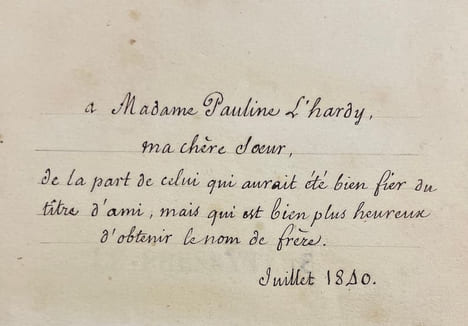 a Madame Pauline L'hardy,
ma chère Sœur,
de la part de celui qui aurait été bien fier du
titre d'ami, mais qui est bien plus heureux
d'obtenir le nom de frère.
Juillet 1840.